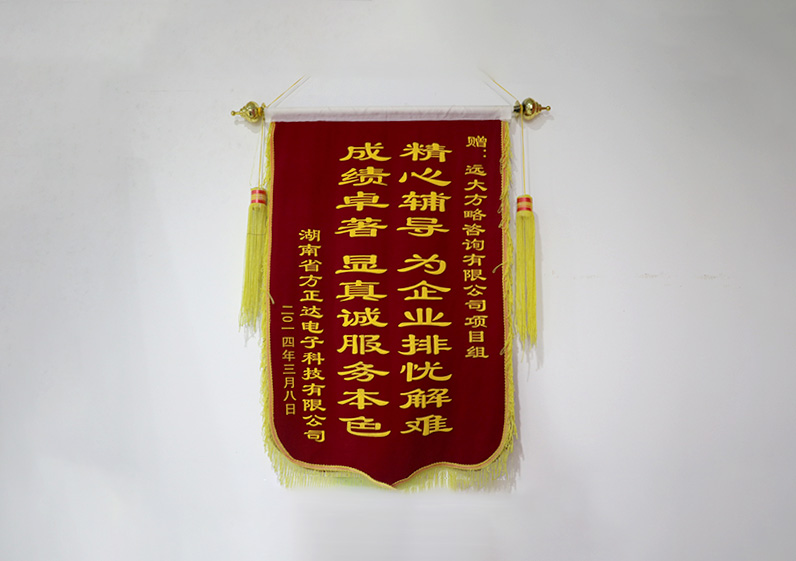 赠：远大方略咨询有限公司项目组
精心辅导 为企业排忧解难
成绩卓著 显真诚服务本色
湖南省方正达电子科技有限公司
二〇一四年三月八日